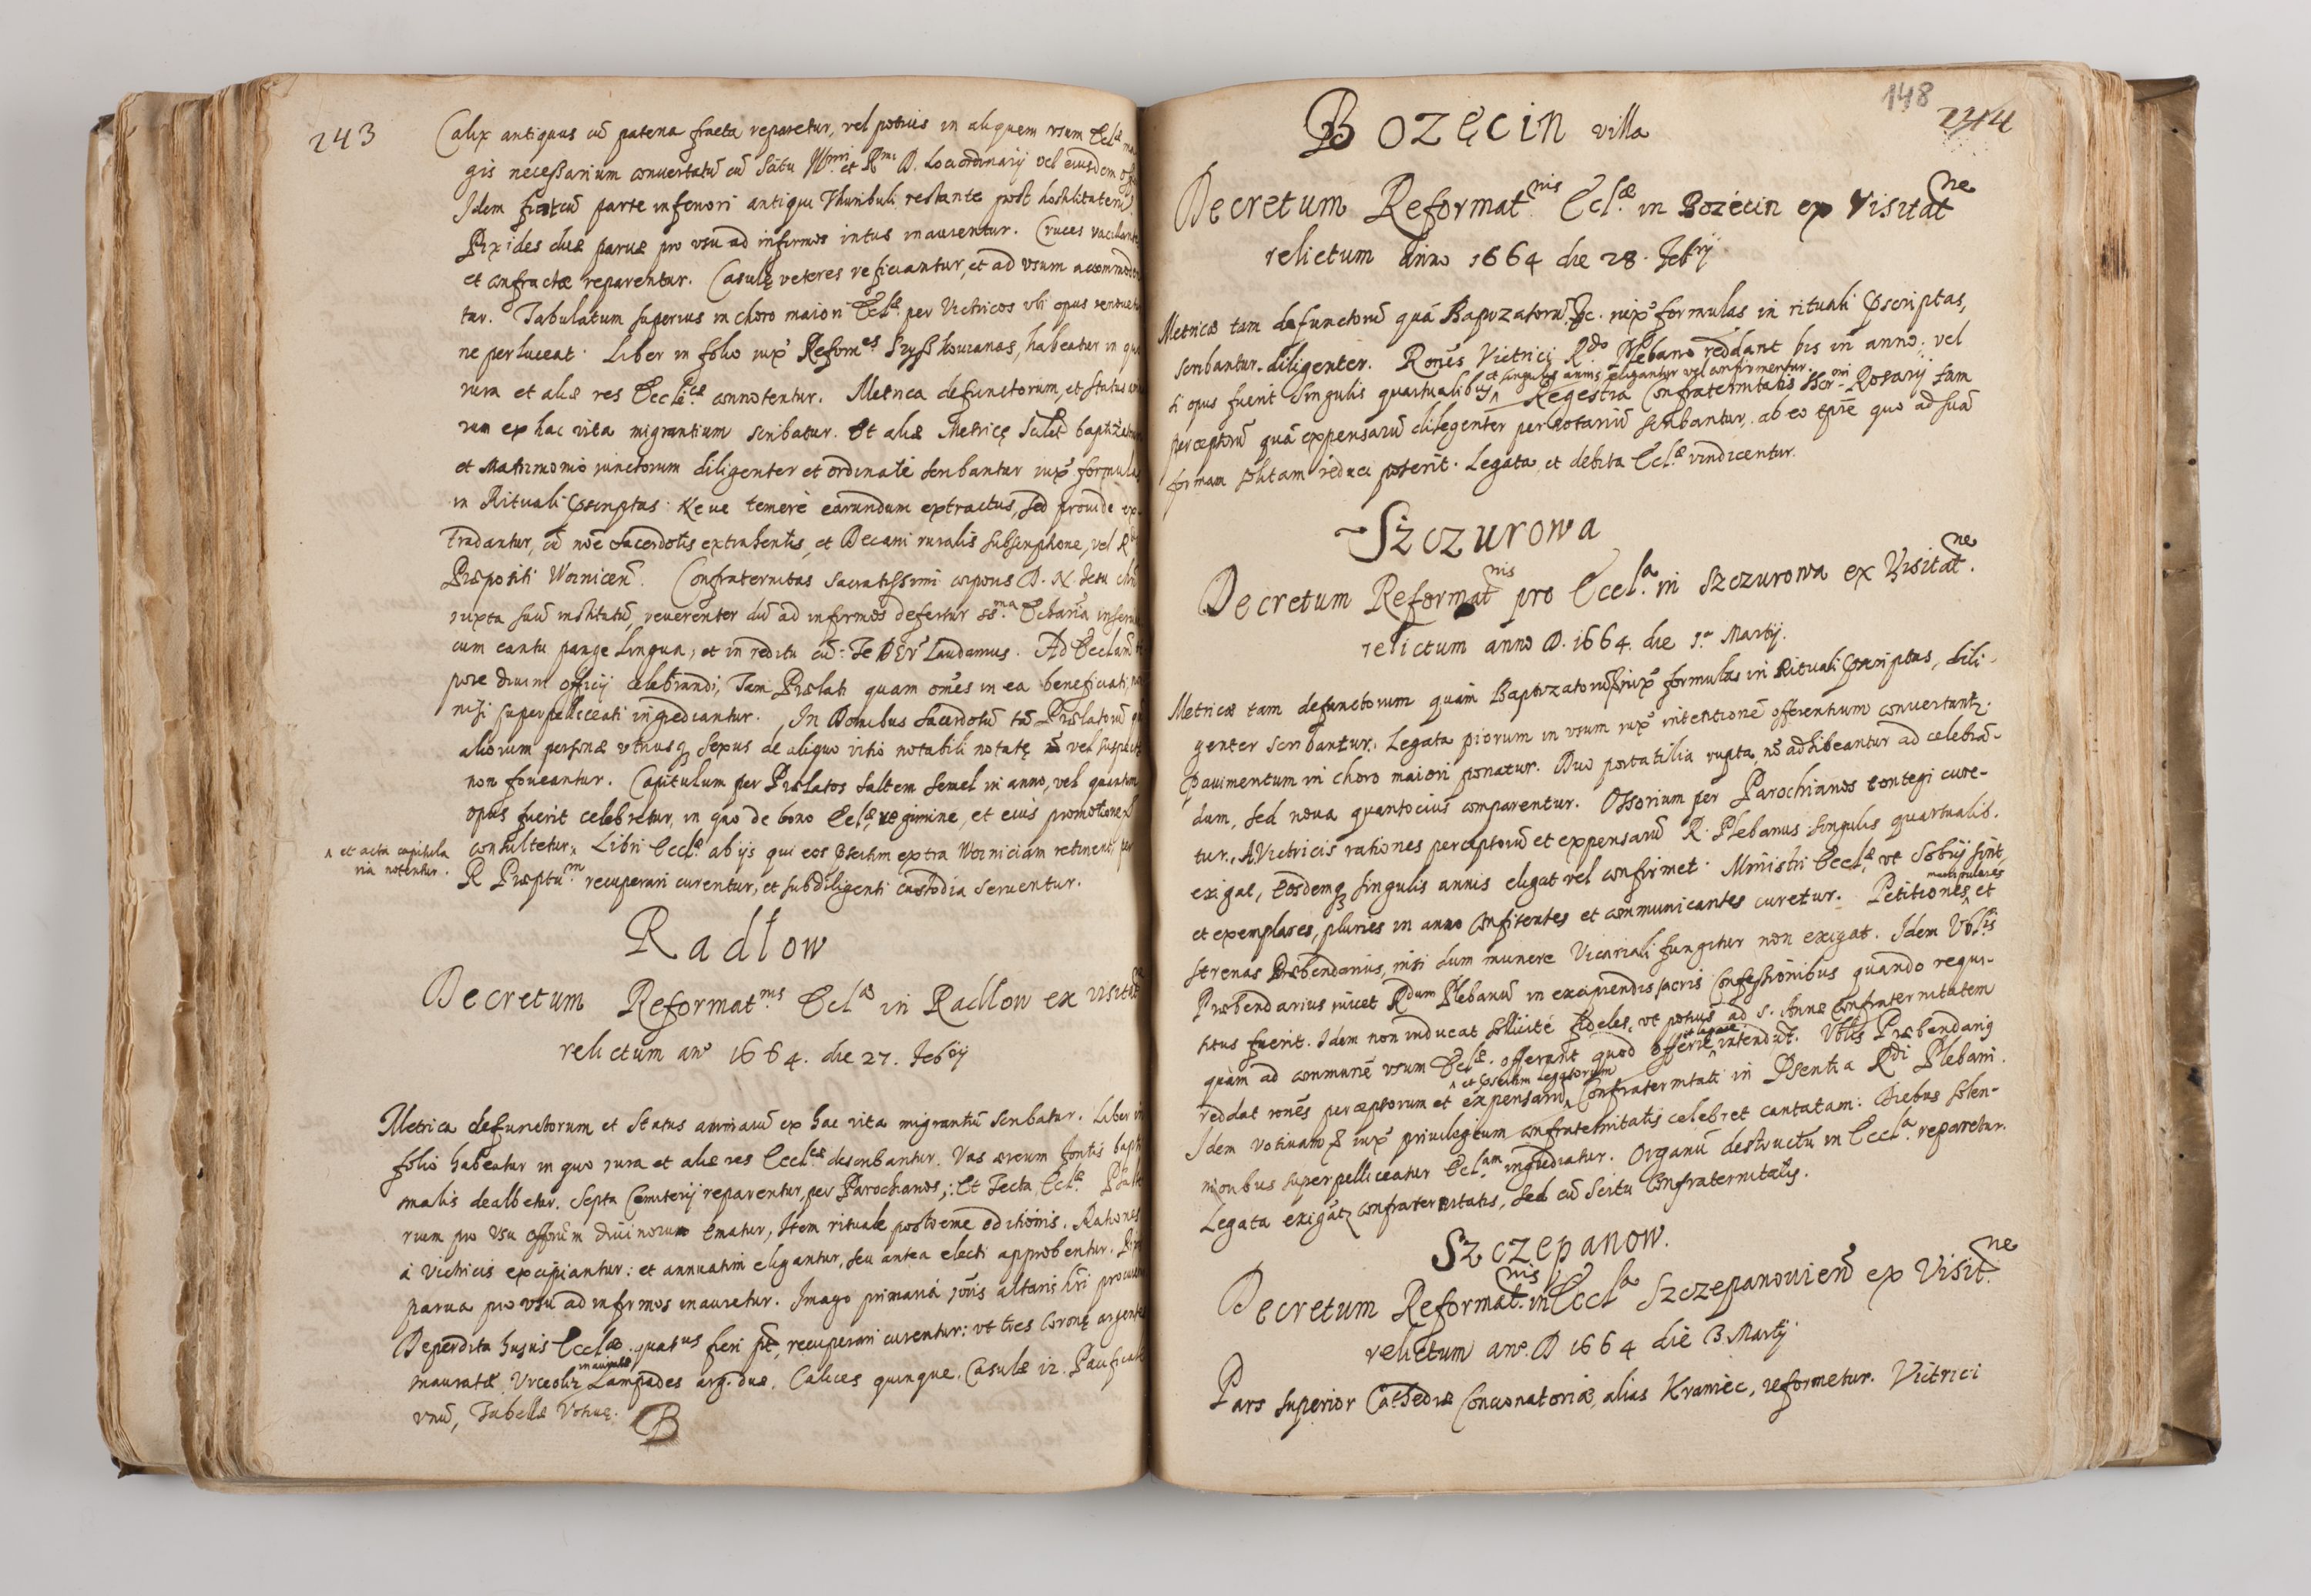 243
Calix antiquus cũ patena fracta reparetur, vel potius in aliquem vsum Eclæ ma
gis necessarium conuertatũ cũ scitu Illmi et Rmi D. Loci ordinarij vel eiusdem offi
Idem fiat cũ parte inferiori antiqui Thuribuli restante post hostilitatem.
Pixides duæ paruæ pro vsu ad infirmos intus inaurentur. Cruces vacilante
et confractæ reparentur. Casulę veteres reficiantur, et ad vsum accommode
tur. Tabulatum superius in choro maiori Eclæ per Victricos vbi opus
ne perluceat. Liber in folio iuxᵃ Reformes Szyszkouianas, habeatur in quo
iura et aliæ res Eccliæ connotentur. Metrica defunctorum, et status
rum ex hac vita migrantium scribatur. Et aliæ Metricę scilet baptizatorum
et Matrimonio iunctorum diligenter et ordinatè scribantur iuxᵃ formulas
in Rituali pscriptas. Neue temerè earundum extractus, sed prouidè ex-
tradantur, cũ noẽ Sacerdotis extrahentis, et Decani ruralis subscriptione, vel R
Præpositi Woinicen̄. Confraternitas sacratissimi corporis D. N. Iesu chri
iuxta suũ institutũ, reuerenter dũ ad infirmos defertur SSma Echaria inseruiat
cum cantu pange Lingua, et in reditu cũ: Te DEV̄ Laudamus. Ad Ecclam
pore diuini officij celebrandi, Tam Prælati quam oẽs in ea beneficiati, no
nisi superpelliceati ingrediantur. In Domibus Sacerdotũ tã Prælatorũ quã
aliorum personæ vtriusq̨ sexus de aliquo vitio notabili notatę vel suspectę
non foueantur. Capitulum per Prælatos saltem semel in anno, vel quantum
opus fuerit celebretur, in quo de bono Eclæ, regimine, et eius promotione
consultetur^. Libri Ecclæ ab ijs qui eos psertim extra Woiniciam retinent, per
^ et acta capitula
ria notentur.
R Præptum recuperari curentur, et sub diligenti custodia seruentur.
Radłow
Decretum Reformatnis Eclæ in Radlow ex visitatne
relictum ano 1664. die 27. Febrij
Metrica defunctorum et Status animarũ ex hac vita migrantiũ scribatur. Liber in
folio habeatur in quo iura et aliæ res Ecclæ describantur. Vas æreum fontis bapti
malis dealbetur. Septa Cemiterij reparentur, per Parochianos, Et Tecta Eclæ. Psalte
rium pro vsu offorum diuinorum ematur, Item rituale postremæ editionis. Rationes
à Victricis excipiantur: et annuatim eligantur, seu antea electi approbentur. Pixis
parua pro vsu ad infirmos inauretur. Imago primariã ioĩs altaris hri procuretur
Deperdita huius Ecclæ quatus fieri pt, recuperari curentur: vt tres Coronę argenteæ
inauratæ, Vrceoli 2 inaurati Lampades arg. duæ. Calices quinque. Casulæ 12. Pacificale
vnũ, Tabellæ Votiuę.
148
244
Bozęcin villa
Decretum Reformatnis Eclæ in Bozęcin ex Visitatne
relictum Anno 1664 die 28. Febrij
Metricæ tam defunctorũ quã Baptizatorũ &c. iuxᵃ formulas in rituali pscriptas,
scribantur diligenter. Rones Victrici Rdo Plebano reddant bis in anno, vel
si opus fuerit singulis quartualibus ^ et singulis annis eligantur vel confirmentur. Regestra Confraternitatis Sacrmi Rosarij tam
perceptorũ quã expensarũ diligenter per notariũ scribantur, ab eo tpre quo ad suã
formam solitam reduci poterit. Legata et debita Eclæ vindicentur.
Szczurowa
Decretum Reformatnis pro Eccla in Szczurowa ex Visitatne.
relictum anno D. 1664. die 1.a Martij.
Metricæ tam defunctorum quam Baptizatorũ iuxᵃ formulas in Rituali pscriptas, dili-
genter scribantur. Legata piorum in vsum iuxᵃ intentionẽ offerentium conuertantr.
Pauimentum in choro maiori ponatur. Duo portatilia rupta, nõ adhibeantur ad celebrã-
dum, sed noua quantocius comparentur. Ossorium per Parochianos contegi cure-
tur. A Victricis rationes perceptorũ et expensarũ R. Plebanus singulis quartualib.
exigat, Eosdemq̨ singulis annis eligat vel confirmet. Ministri Ecclæ vt sobrij sint,
et exemplares, pluries in anno confitentes et communicantes curetur. Petitiones, manipulares et
strenas Præbendarius, nisi dum munere Vicariali fungitur non exigat. Idem Vblis
Præbendarius iuuet Rdum Plebanũ in excipiendis sacris Confessionibus quando requi-
situs fuerit. Idem non inducat sollicitè fideles, vt potius ad S. Annæ Confraternitatem
quam ad communẽ vsum Eclæ. offerant quod offerre et legare intendũt. Vblis Præbendarij
reddat rones perceptorum et expensarũ ^ et psertim legatorum Confraternitati in psentia Rdi Plebani.
Idem Votiuam S iuxᵃ priuilegium confraternitatis celebret cantatam. Diebus solen-
nioribus superpelliceatur Eclam ingrediatur. Organũ destructũ in Eccla reparetur.
Legata exigãt confraternitatis, sed cũ scitu Confraternitatis.
Szczepanow.
Decretum Reformatnis in Eccla Szczepanouien̄ ex Visitne
relictum ano. D 1664 die 3 Martij
Pars superior Cathedræ Concionatoriæ, alias Kraniec, reformetur. Victrici